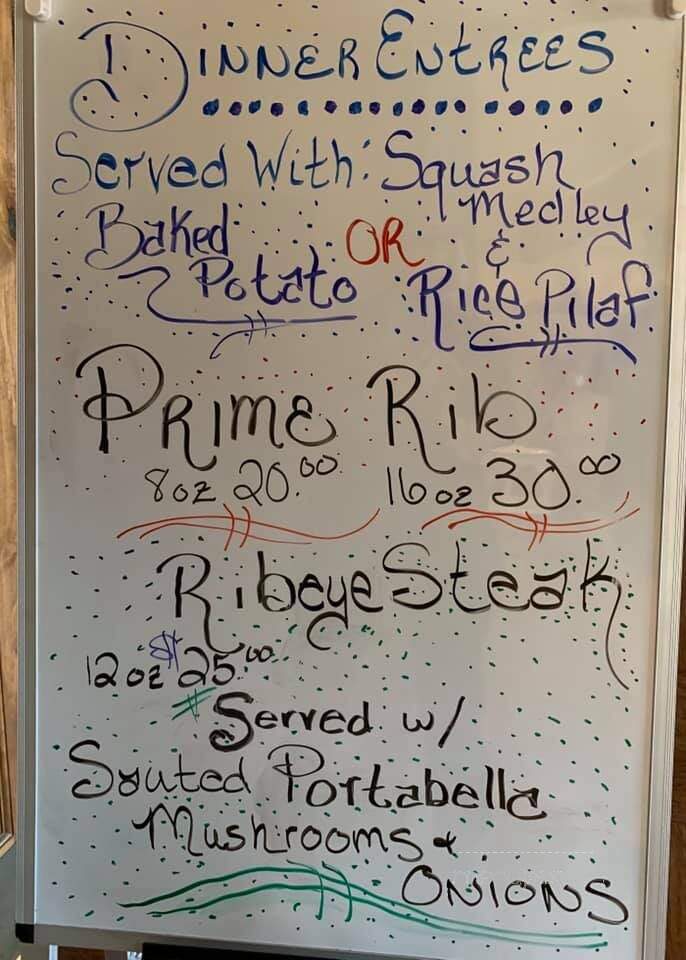 DINNER ENTREES
Served With: Squash
Medley
Baked OR &
Potato Rice Pilaf
PRIME Rib
8oz 20.00 16oz 30.00
Ribeye Steak
12oz $25.00
Served w/
Sauted Portabella
Mushrooms &
ONIONS